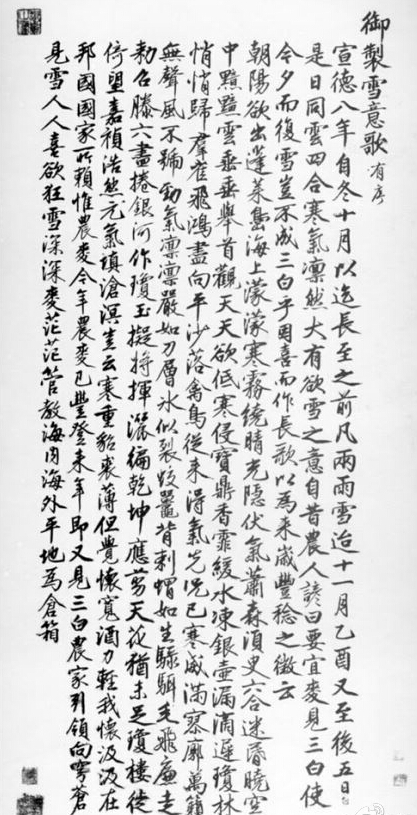 御製雪意歌有序
宣德八年自冬十月以迄長至之前凡兩雨雪迨十一月乙酉又至後五日
是日同雲四合寒氣凛然大有欲雪之意自昔農人諺曰要宜麥見三白使
今夕而復雪豈不成三白乎因喜而作長歌以為来嵗豐稔之徵云
朝陽欲出蓬莱島海上濛濛寒霧繞晴光隱伏氣蕭森湏史六合迷昏曉空
中黯黯雲垂垂舉首觀天天欲低寒侵寶鼎香霏緩水凍銀壺漏滴遲瓊林
悄悄歸群雀飛鴻盡向平沙落禽鳥從来得氣先况已寒威滿寥廓萬籟
無聲風不號勁氣凛凛嚴如刀層氷似裂蛟鼉背刺蝟如生騄駬毛飛廉走
勑召滕六盡捲銀河作瓊玉擬將揮灑徧乾坤應剪天花猶未足瓊樓徙
倚望嘉禎浩然元氣填滄溟豈云寒重貂裘薄但覺懷寬酒力輕我懷汲汲在
邦國國家所賴惟農麥今年農麥已豐登来年即又見三白農家引領向穹蒼
見雪人人喜欲狂雪深深麥茫茫管教海内海外平地為倉箱